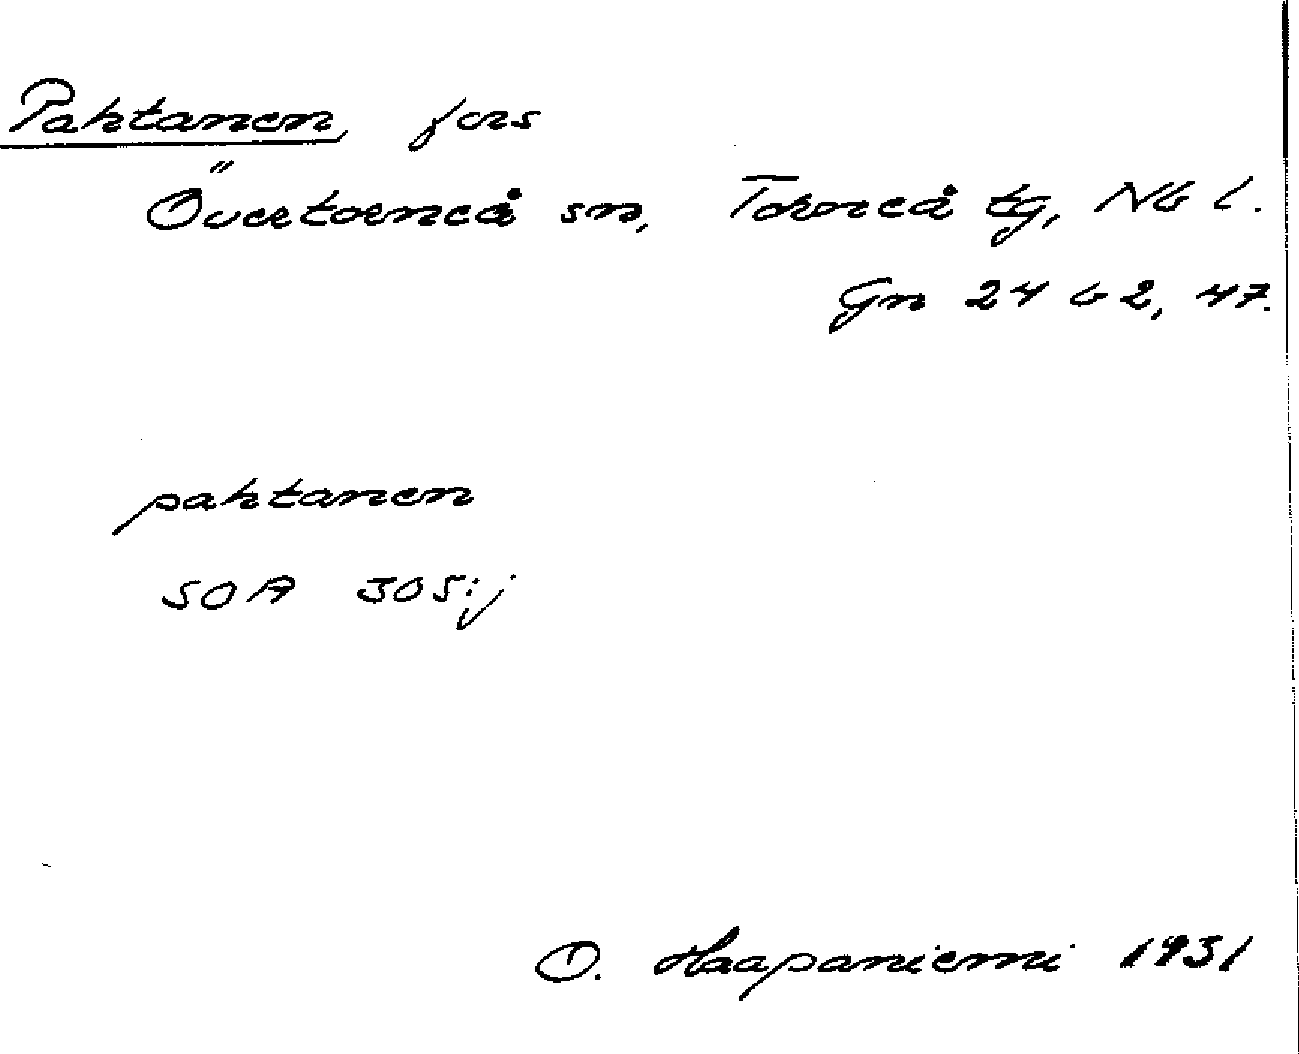 Pahtanen, fors
Övertorneå sn, Torneå tg, Nb l.
Gn 24 b 2, 47.
pahtanen
SOA 305:j
O. Haapaniemi 1931